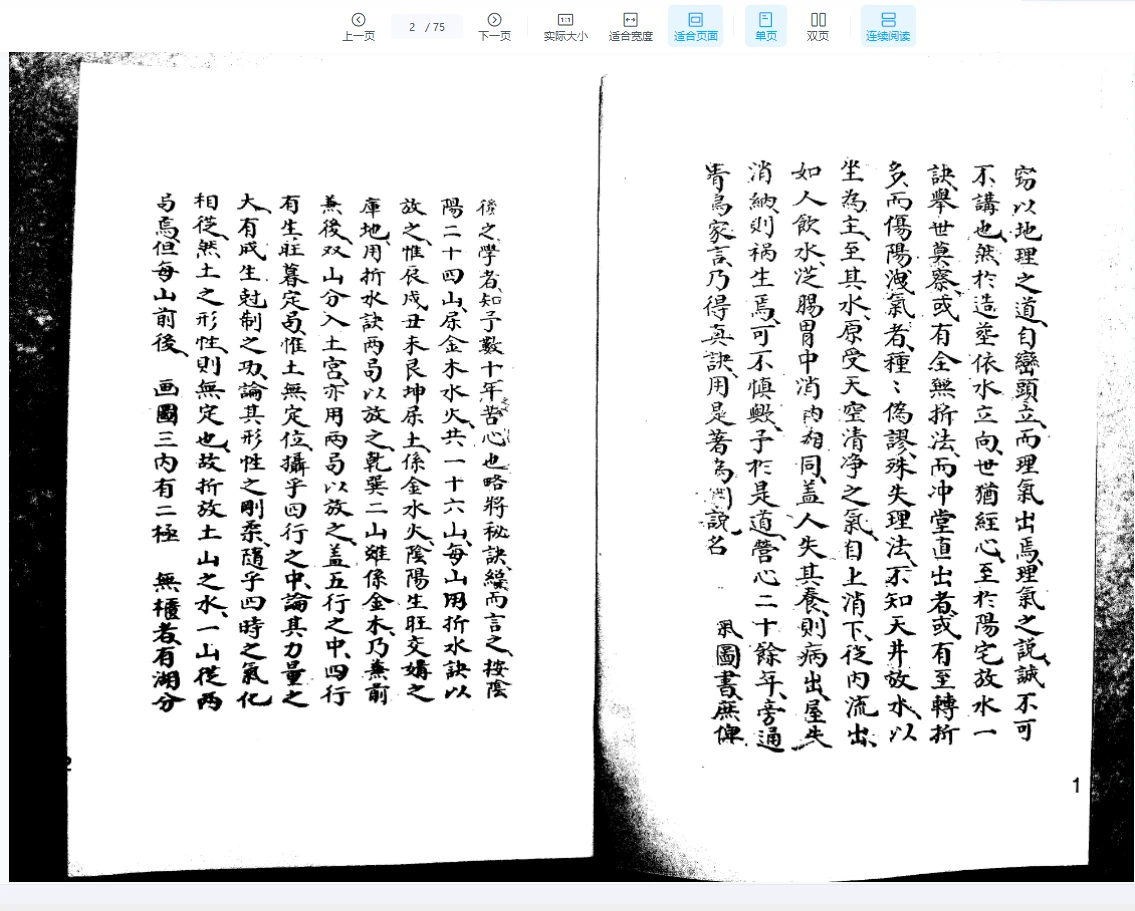 上一页
2 / 75
下一页
1:1
实际大小
适合宽度
适合页面
单页
双页
连续阅读
窃以地理之道自巒頭立而理氣出焉理氣之説誠不可
不講也然於造塋依水立向世猶經心至於陽宅放水一
訣舉世莫察或有全無折法而冲堂直出者或有至轉折
多而傷陽洩氣者種〻偽謬殊失理法不知天井放水以
坐為主至其水原受天空清净之氣自上消下従内流出
如人飲水従腸胃中消納相同盖人失其養則病出屋失
消納則禍生焉可不慎歟予於是道營心二十餘年旁通
青烏家言乃得真訣用是著為圖説名 氣圖書庶俾
1
後之學者知予數十年之苦心也略將秘訣縷而言之按陰
陽二十四山屬金木水火共一十六山每山用折水訣以
放之惟辰戌丑未艮坤屬土係金水火陰陽生旺交媾之
庫地用折水訣两局以放之乾巽二山雖係金木乃兼前
兼後双山分入土宮亦用两局以放之盖五行之中四行
有生旺暮定局惟土無定位攝乎四行之中論其力量之
大有成生尅制之功論其形性之剛柔隨乎四時之氣化
相従然土之形性則無定也故折放土山之水一山従两
局焉但每山前後 画圖三内有二極 無櫃者有湖分
2